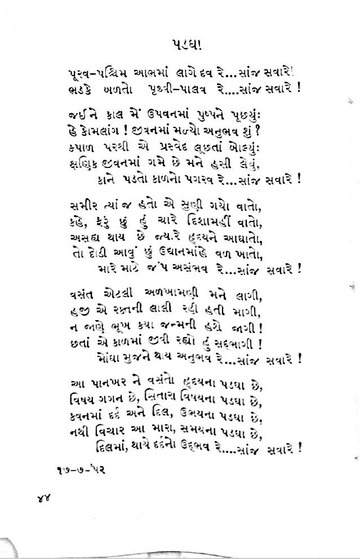 પડઘા
પૂરવ-પશ્ચિમ આભમાં લાગે દવ રે...સાંજ સવારે!
ભડકે બળતો પૃથ્વી-પાલવ રે...સાંજ સવારે!
જઈને કાલ મેં ઉપવનમાં પુષ્પને પૂછયું:
હે કોમલાંગ! જીવનમાં મળ્યો અનુભવ શું?
કપાળ પરથી એ પ્રસ્વેદ લૂછતાં બોલ્યું:
ક્ષણિક જીવનમાં ગમે છે મને હસી લેવું,
કાને પડતો કાળનો પગરવ રે...સાંજ સવારે!
સમીર ત્યાં જ હતો એ સુણી ગયો વાતો,
કહે, ફરું છું હું ચારે દિશામહીં વાતો,
અસહ્ય થાય છે જ્યારે હૃદયને આઘાતો,
તો દોડી આવું છું ઉદ્યાનમાંહે વળ ખાતો,
મારે માટે જંપ અસંભવ રે...સાંજ સવારે!
વસંત એટલી અળખામણી મને લાગી,
હજી એ રક્તની લાલી રહી હતી માગી,
ન જાણે ભૂખ કયા જન્મની હશે જાગી!
છતાં એ કાળમાં જીવી રહ્યો હું સદ્દભાગી!
મોંઘા મુજને થાય અનુભવ રે...સાંજ સવારે!
આ પાનખર ને વસંતો હૃદયના પડઘા છે,
વિષય ગગન છે, સિતારા વિષયના પડઘા છે,
કવનમાં દર્દ અને દિલ, ઉભયના પડઘા છે,
નથી વિચાર આ મારા, સમયના પડઘા છે,
દિલમાં, થાયે દર્દનો ઉદ્દભવ રે....સાંજ સવારે!
૧૭-૭-'૫૨
૪૪